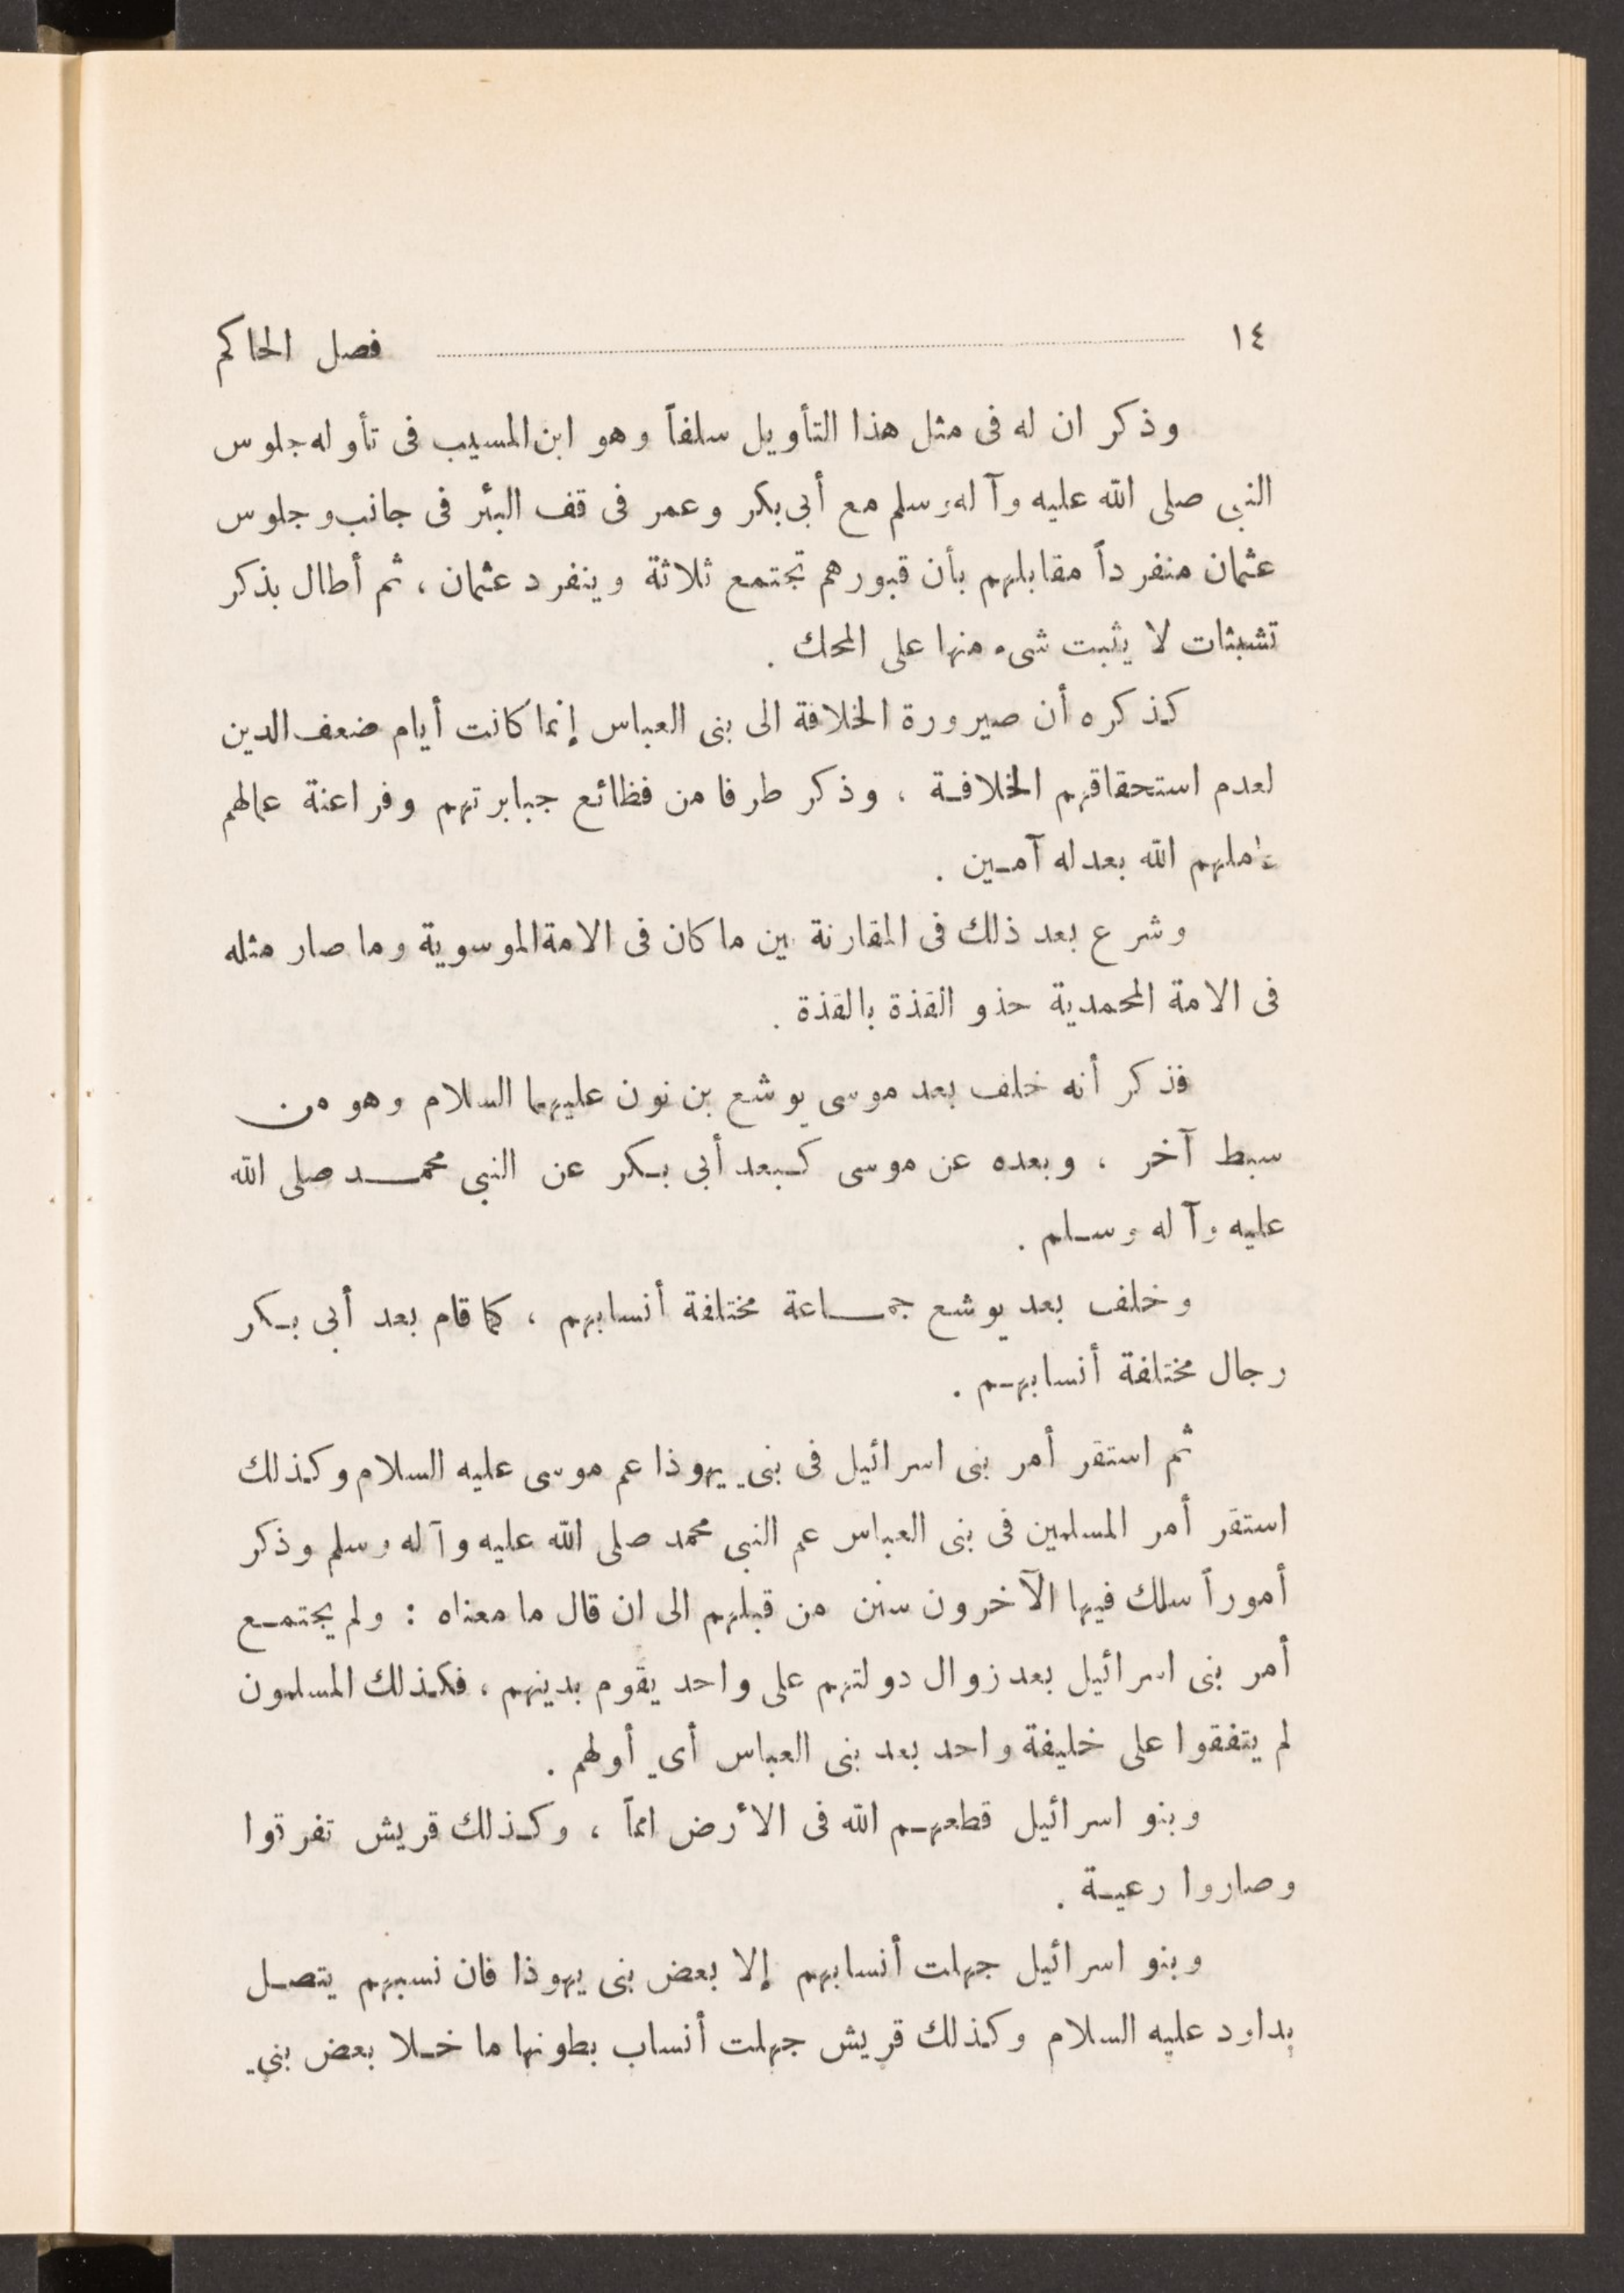 ١٤ فصل الحاكم
وذكر ان له فى مثل هذا التأويل سلفاً وهو ابن المسيب فى تأوله جلوس
النبى صلى الله عليه وآله وسلم مع أبى بكر وعمر فى قف البئر فى جانب وجلوس
عثمان منفرداً مقابلهم بأن قبورهم تجتمع ثلاثة وينفرد عثمان ، ثم أطال بذكر
تشبثات لا يثبت شىء منها على المحك .
كذكره أن صيرورة الخلافة الى بنى العباس إنما كانت أيام ضعف الدين
لعدم استحقاقهم الخلافة ، وذكر طرفا من فظائع جبابرتهم وفراعنة عمالهم
عاملهم الله بعدله آمين .
وشرع بعد ذلك فى المقارنة بين ما كان فى الامة الموسوية وما صار مثله
فى الامة المحمدية حذو القذة بالقذة .
فذكر أنه خلف بعد موسى يوشع بن نون عليهما السلام وهو من
سبط آخر ، وبعده عن موسى كبعد أبى بكر عن النبى محمد صلى الله
عليه وآله وسلم .
وخلف بعد يوشع جماعة مختلفة أنسابهم ، كما قام بعد أبى بكر
رجال مختلفة أنسابهم .
ثم استقر أمر بنى اسرائيل فى بني يهوذا عم موسى عليه السلام وكذلك
استقر أمر المسلمين فى بنى العباس عم النبى محمد صلى الله عليه وآله وسلم وذكر
أموراً سلك فيها الآخرون سنن من قبلهم الى ان قال ما معناه : ولم يجتمع
أمر بنى اسرائيل بعد زوال دولتهم على واحد يقوم بدينهم ، فكذلك المسلمون
لم يتفقوا على خليفة واحد بعد بنى العباس أي أولهم .
وبنو اسرائيل قطعهم الله فى الأرض امماً ، وكذلك قريش تفرقوا
وصاروا رعية .
وبنو اسرائيل جهلت أنسابهم إلا بعض بنى يهوذا فان نسبهم يتصل
بداود عليه السلام وكذلك قريش جهلت أنساب بطونها ما خلا بعض بني